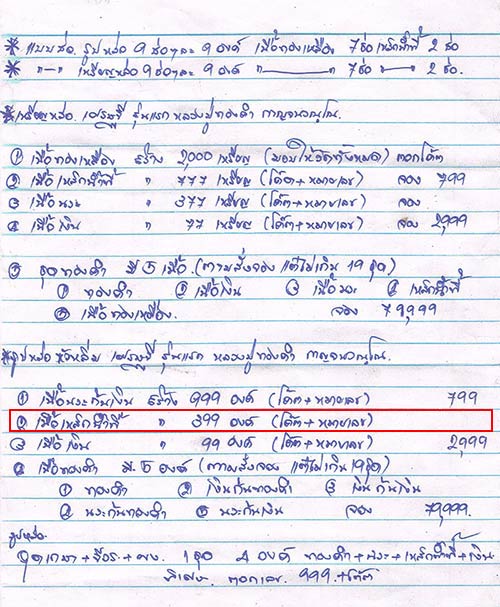 * แบบช่อ. รูปหล่อ 9 ช่อๆละ 9 องค์ เนื้อทองเหลือง 7ช่อ เหล็กน้ำพี้ 2 ช่อ
* "—" เหรียญหล่อ 9 ช่อๆละ 9 องค์ "—" 7ช่อ "—" 2 ช่อ.
* เหรียญหล่อ. รุ่นแรก หลวงปู่ทองดำ กาญจนวณฺโณ.
① เนื้อทองเหลือง สร้าง 2,000 เหรียญ (มอบให้วัดทั้งหมด) ตอกโค๊ต
② เนื้อเหล็กน้ำพี้ " 777 เหรียญ (โค๊ต+หมายเลข) จอง 799
③ เนื้อนวะ " 377 เหรียญ (โค๊ต+หมายเลข) จอง
④ เนื้อเงิน " 77 เหรียญ (โค๊ต+หมายเลข) จอง 2,999
⑤ ชุดทองคำ มี 5 เนื้อ (ตามสั่งจอง แต่ไม่เกิน 19 ชุด)
① ทองคำ ② เนื้อเงิน ③ เนื้อนวะ ④ เหล็กน้ำพี้
⑤ เนื้อทองเหลือง. จอง 79,999
* รูปหล่อ รุ่นแรก หลวงปู่ทองดำ กาญจนวณฺโณ.
① เนื้อนวะก้นเงิน สร้าง 999 องค์ (โค๊ต+หมายเลข) 799
② เนื้อเหล็กน้ำพี้ " 399 องค์ (โค๊ต+หมายเลข)
③ เนื้อเงิน " 99 องค์ (โค๊ต+หมายเลข) 2,999
④ เนื้อทองคำ มี 5 องค์ (ตามสั่งจอง แต่ไม่เกิน 19 ชุด)
① ทองคำ ② เงินก้นทองคำ ③ เงินก้นเงิน
④ นวะก้นทองคำ ⑤ นวะก้นเงิน จอง 79,999.
รูปหล่อ
+ จีวร + 1 ชุด 4 องค์ ทองคำ + นวะ + เหล็กน้ำพี้ + เงิน
พิเศษ ตอกเลข 999 + โค๊ต